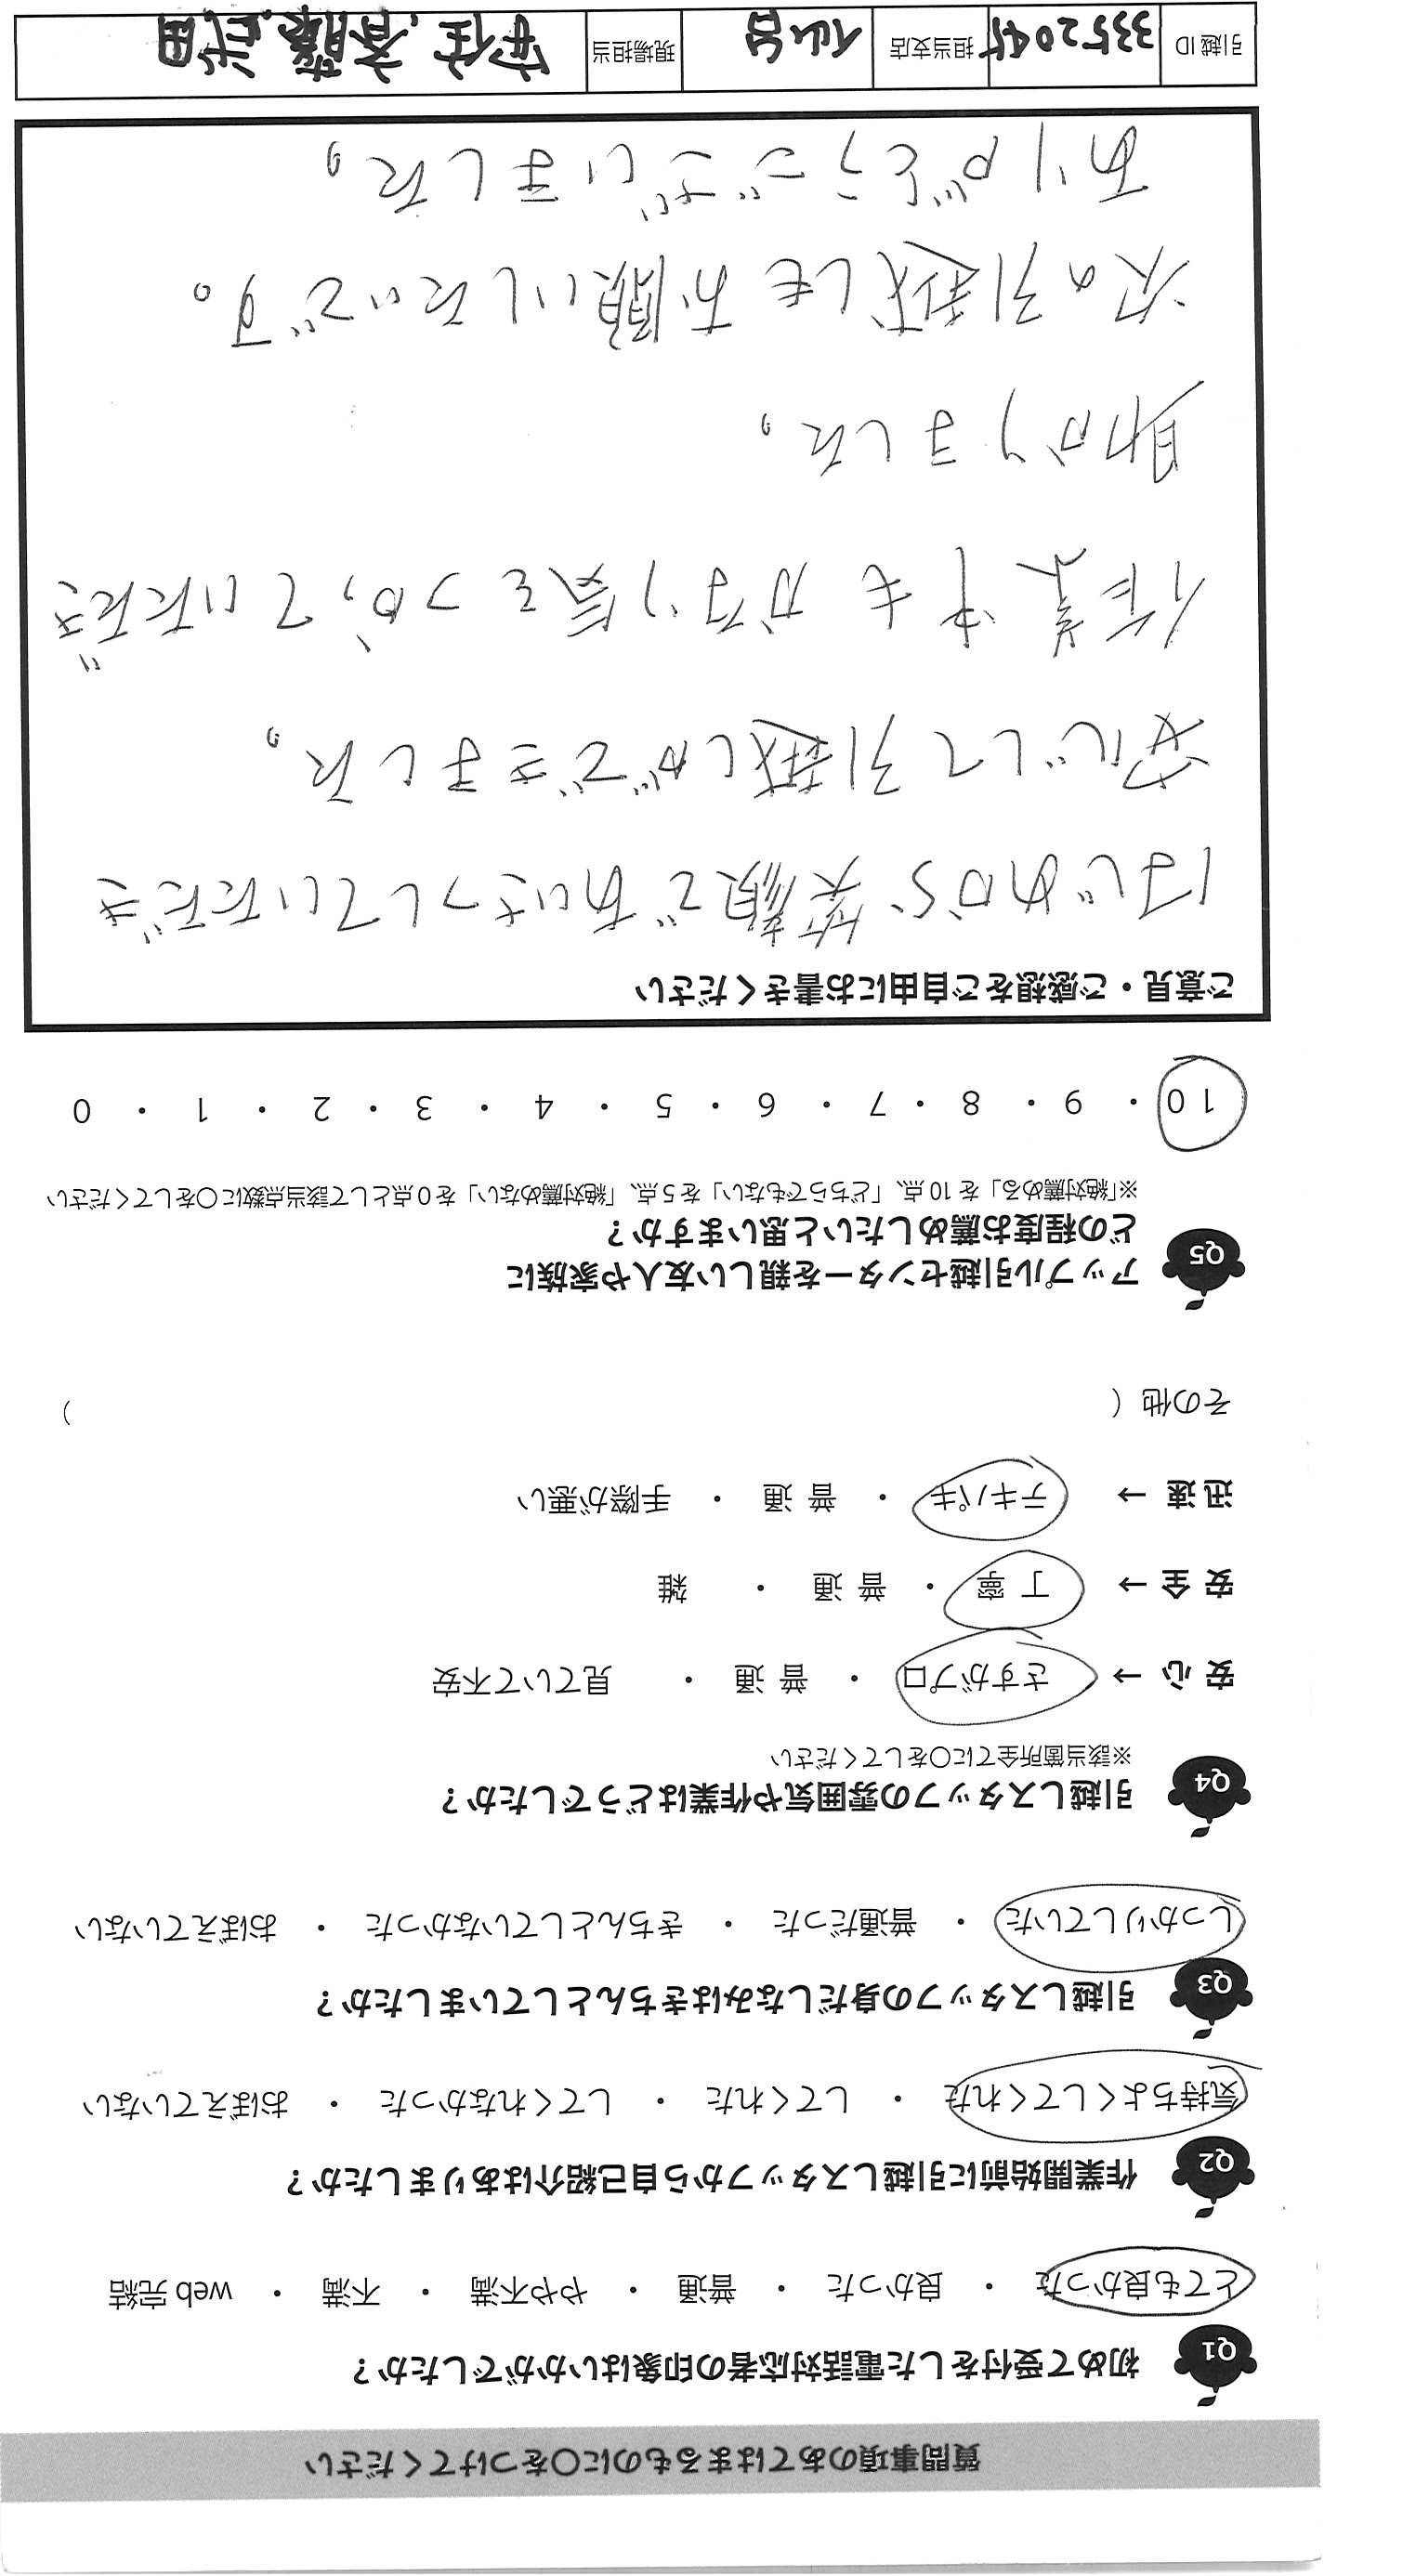 質問事項のあてはまるものに〇をつけてください
Q1 初めて受付をした電話対応者の印象はいかがでしたか？
とても良かった ・ 良かった ・ 普通 ・ やや不満 ・ 不満 ・ web 完結
Q2 作業開始前に引越しスタッフから自己紹介はありましたか？
気持ちよくしてくれた ・ してくれた ・ してくれなかった ・ おぼえていない
Q3 引越しスタッフの身だしなみはきちんとしていましたか？
しっかりしていた ・ 普通だった ・ きちんとしていなかった ・ おぼえていない
Q4 引越しスタッフの雰囲気や作業はどうでしたか？
※該当箇所全てに〇をしてください
安 心 → さすがプロ ・ 普 通 ・ 見ていて不安
安 全 → 丁 寧 ・ 普 通 ・ 雑
迅 速 → テキパキ ・ 普 通 ・ 手際が悪い
その他（ ）
Q5 アップル引越センターを親しい友人や家族に
どの程度お薦めしたいと思いますか？
※「絶対薦める」を 10 点、「どちらでもない」を 5 点、「絶対薦めない」を 0 点として該当点数に〇をしてください
10 ・ 9 ・ 8 ・ 7 ・ 6 ・ 5 ・ 4 ・ 3 ・ 2 ・ 1 ・ 0
ご意見・ご感想をご自由にお書きください
はじめから笑顔であいさつしていただき
安心して引越しができました。
作業中もかなり気をつかっていただき
助かりました。
次の引越しもお願いしたいです。
ありがとうございました。
引越 ID 3352045 担当支店 仙台 現場担当 安住、斉藤、武田